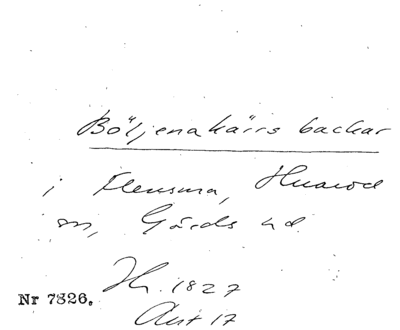 Böljenakärrs backar
i Flensma, Huarod
sn, Gärds hd.
Hr. 1827
Nr 7826.
Akt 17